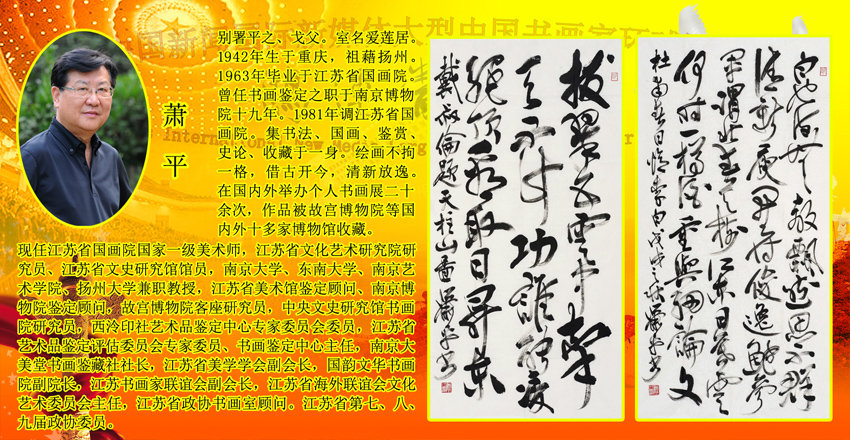 别署平之、戈父。室名爱莲居。
1942年生于重庆，祖藉扬州。
1963年毕业于江苏省国画院。
曾任书画鉴定之职于南京博物
院十九年。1981年调江苏省国
画院。集书法、国画、鉴赏、
史论、收藏于一身。绘画不拘
一格，借古开今，清新放逸。
在国内外举办个人书画展二十
余次，作品被故宫博物院等国
内外十多家博物馆收藏。
萧平
现任江苏省国画院国家一级美术师，江苏省文化艺术研究院研
究员、江苏省文史研究馆馆员，南京大学、东南大学、南京艺
术学院、扬州大学兼职教授，江苏省美术馆鉴定顾问、南京博
物院鉴定顾问，故宫博物院客座研究员，中央文史研究馆书画
院研究员，西泠印社艺术品鉴定中心专家委员会委员，江苏省
艺术品鉴定评估委员会专家委员、书画鉴定中心主任，南京大
美堂书画鉴藏社社长，江苏省美学学会副会长，国韵文华书画
院副院长，江苏书画家联谊会副会长，江苏省海外联谊会文化
艺术委员会主任，江苏省政协书画室顾问。江苏省第七、八、
九届政协委员。
拔翠五雲中擎
天不计功誰能凌
絕頂看取日昇東
戴叔倫題天柱山圖 蕭平書
白也詩無敵飄然思不群
清新庾開府俊逸鮑參
軍渭北春天樹江東日暮雲
何時一樽酒重與細論文
杜甫春日憶李白戊戌之秋蕭平書